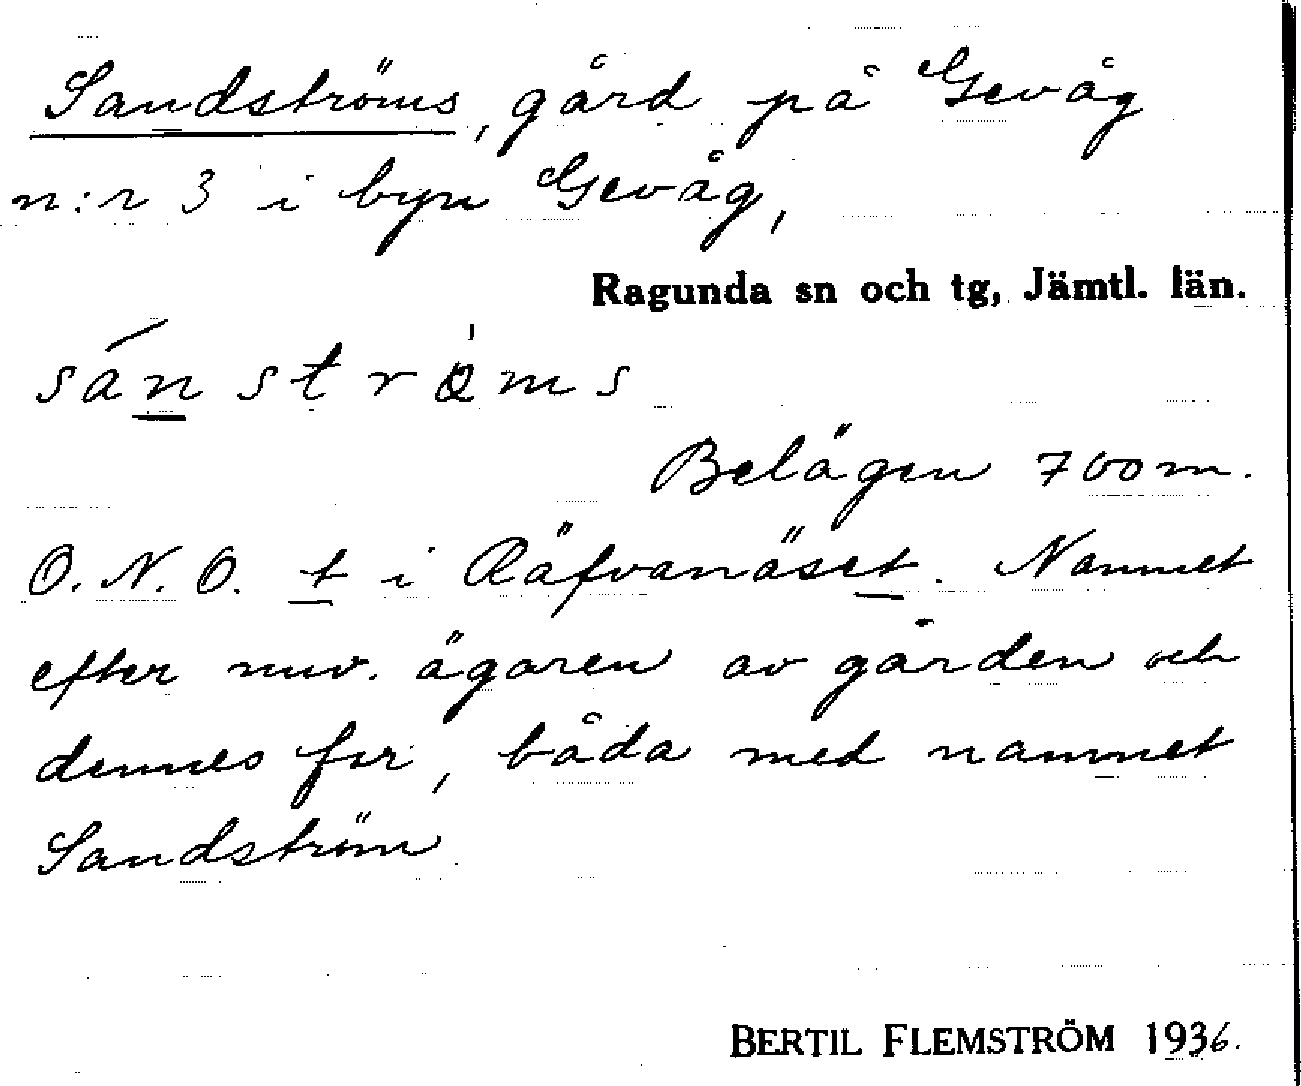 Sandströms, gård på Gevåg
n:r 3 i byn Gevåg,
Ragunda sn och tg, Jämtl. län.
sánströms
Belägen 700 m.
O.N.O. t i Räfvanäset. Namnet
efter nuv. ägaren av gården och
dennes far, båda med namnet
Sandström.
BERTIL FLEMSTRÖM 1936.